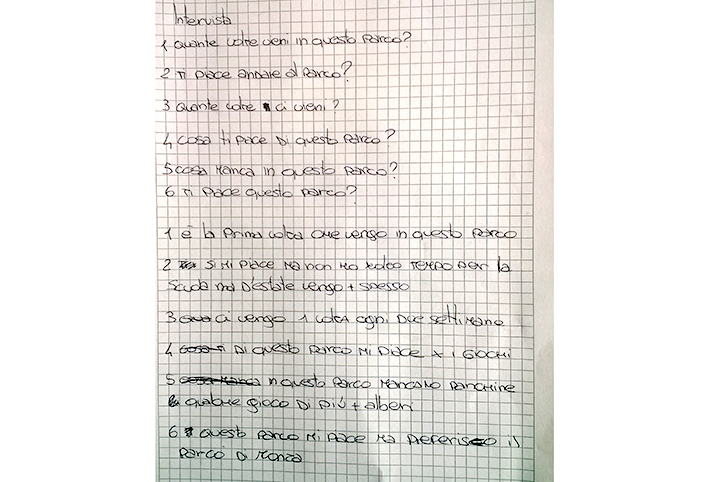 Intervista
1 Quante volte vieni in questo parco?
2 Ti piace andare al parco?
3 Quante volte ci vieni?
4 Cosa ti piace di questo parco?
5 Cosa manca in questo parco?
6 Ti piace questo parco?
1 è la prima volta che vengo in questo parco
2 Si mi piace ma non ho molto tempo per la
scuola ma d'estate vengo + spesso
3 ci vengo 1 volta ogni due settimane
4 Di questo parco mi piace x i giochi
5 in questo parco mancano panchine
qualche gioco di più + alberi
6 questo parco mi piace ma preferisco il
parco di Monza